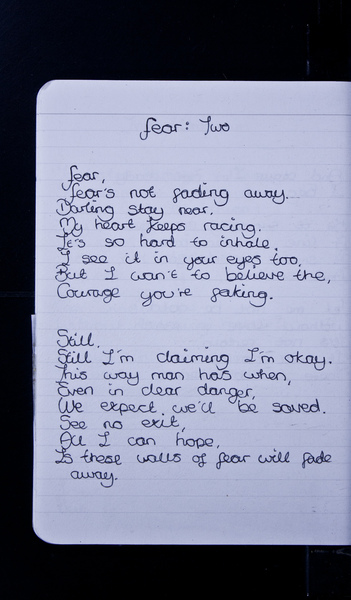 fear: Two
fear,
fear's not fading away.
Darling stay near.
My heart keeps racing.
It's so hard to inhale.
I see it in your eyes too,
But I want to believe the,
Courage you're faking.
Still.
Still I'm claiming I'm okay.
This way man has when,
Even in clear danger,
We expect we'll be saved.
See no exit,
All I can hope,
Is these walls of fear will fade
away.